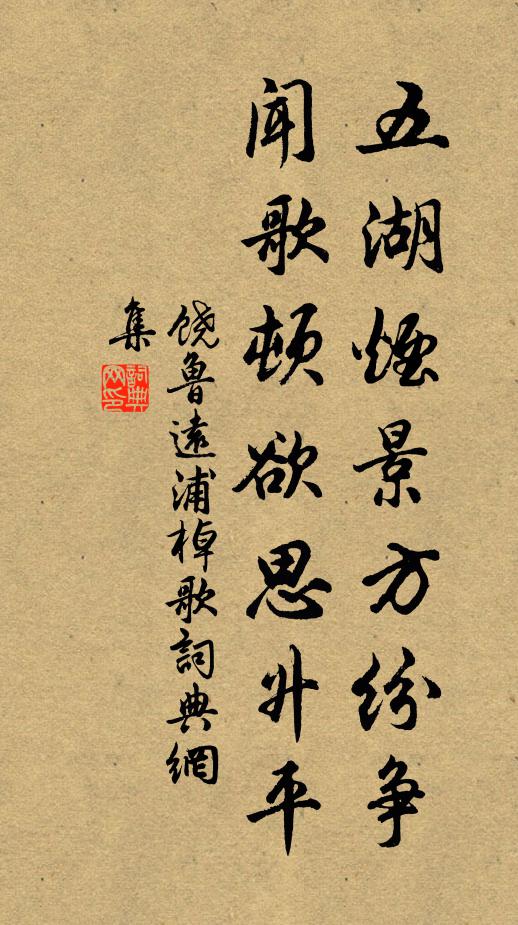 五湖煙景方纷争
闻歌顿欲思升平
饶鲁遠浦棹歌詞典網
集
詞典网印